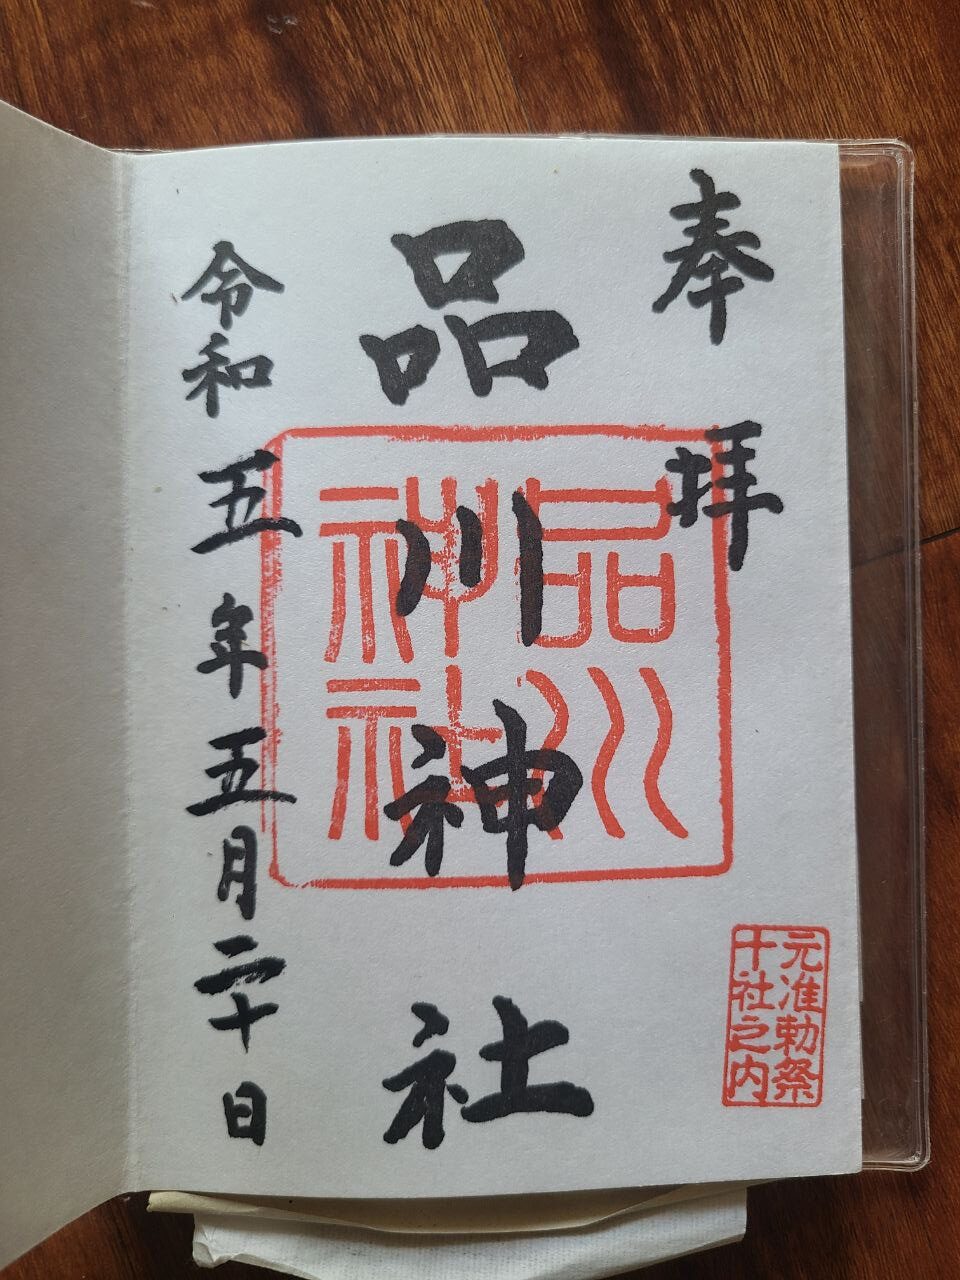 奉拝
品川神社
令和五年五月二十日
品川
神社
元准勅祭
十社之内